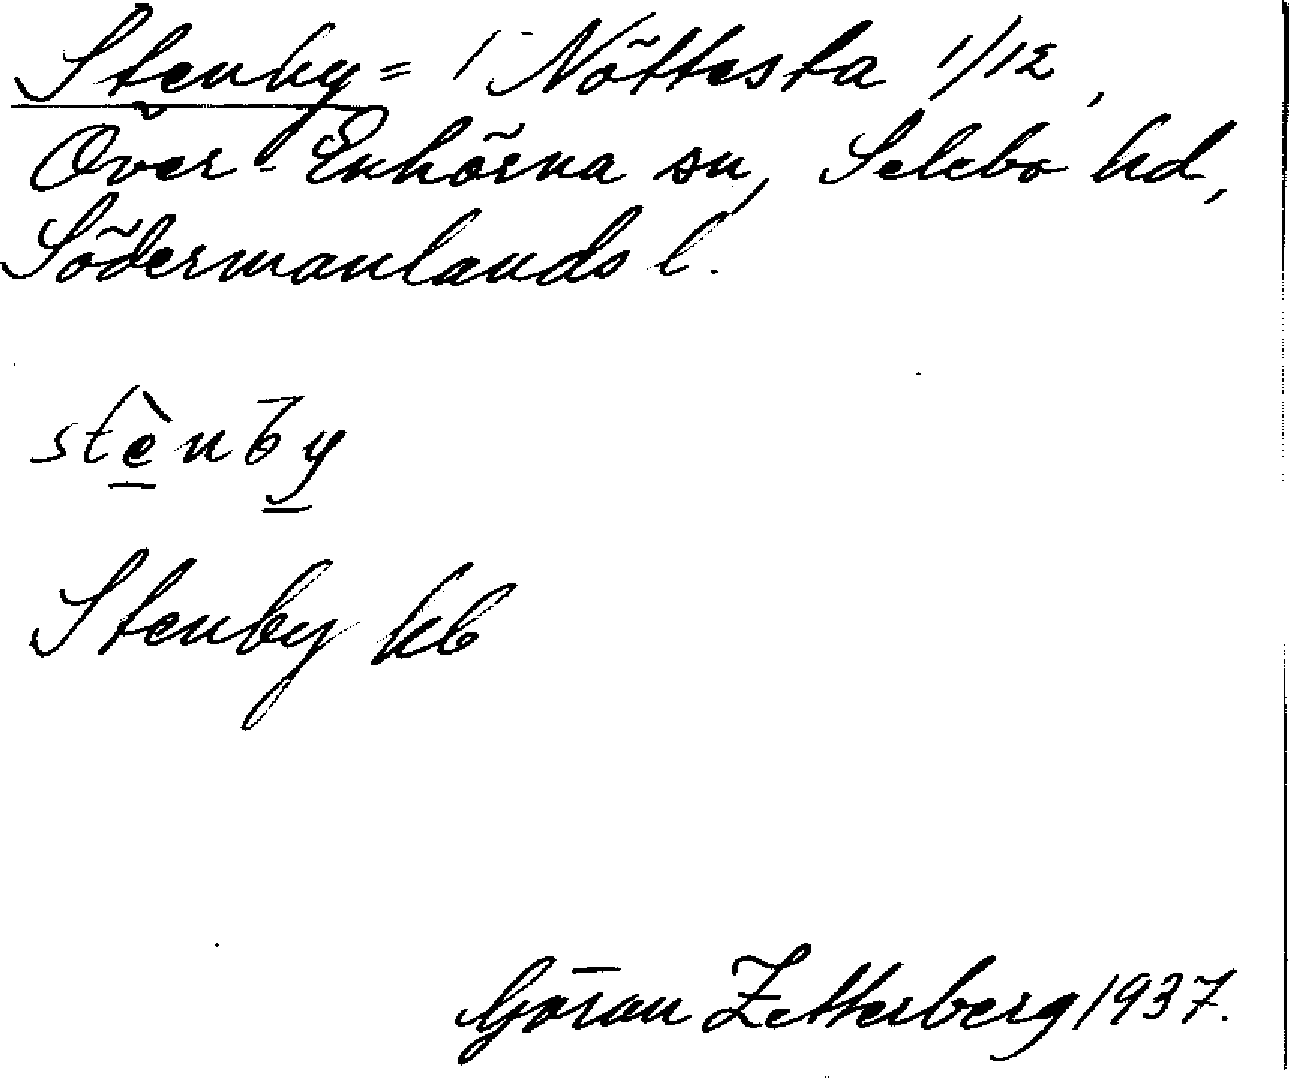 Stenby = 1 Nöttesta 1/12,
Över-Enhörna sn, Selebo hd,
Södermanlands l.
stènby
Stenby kb
Göran Zetterberg 1937.